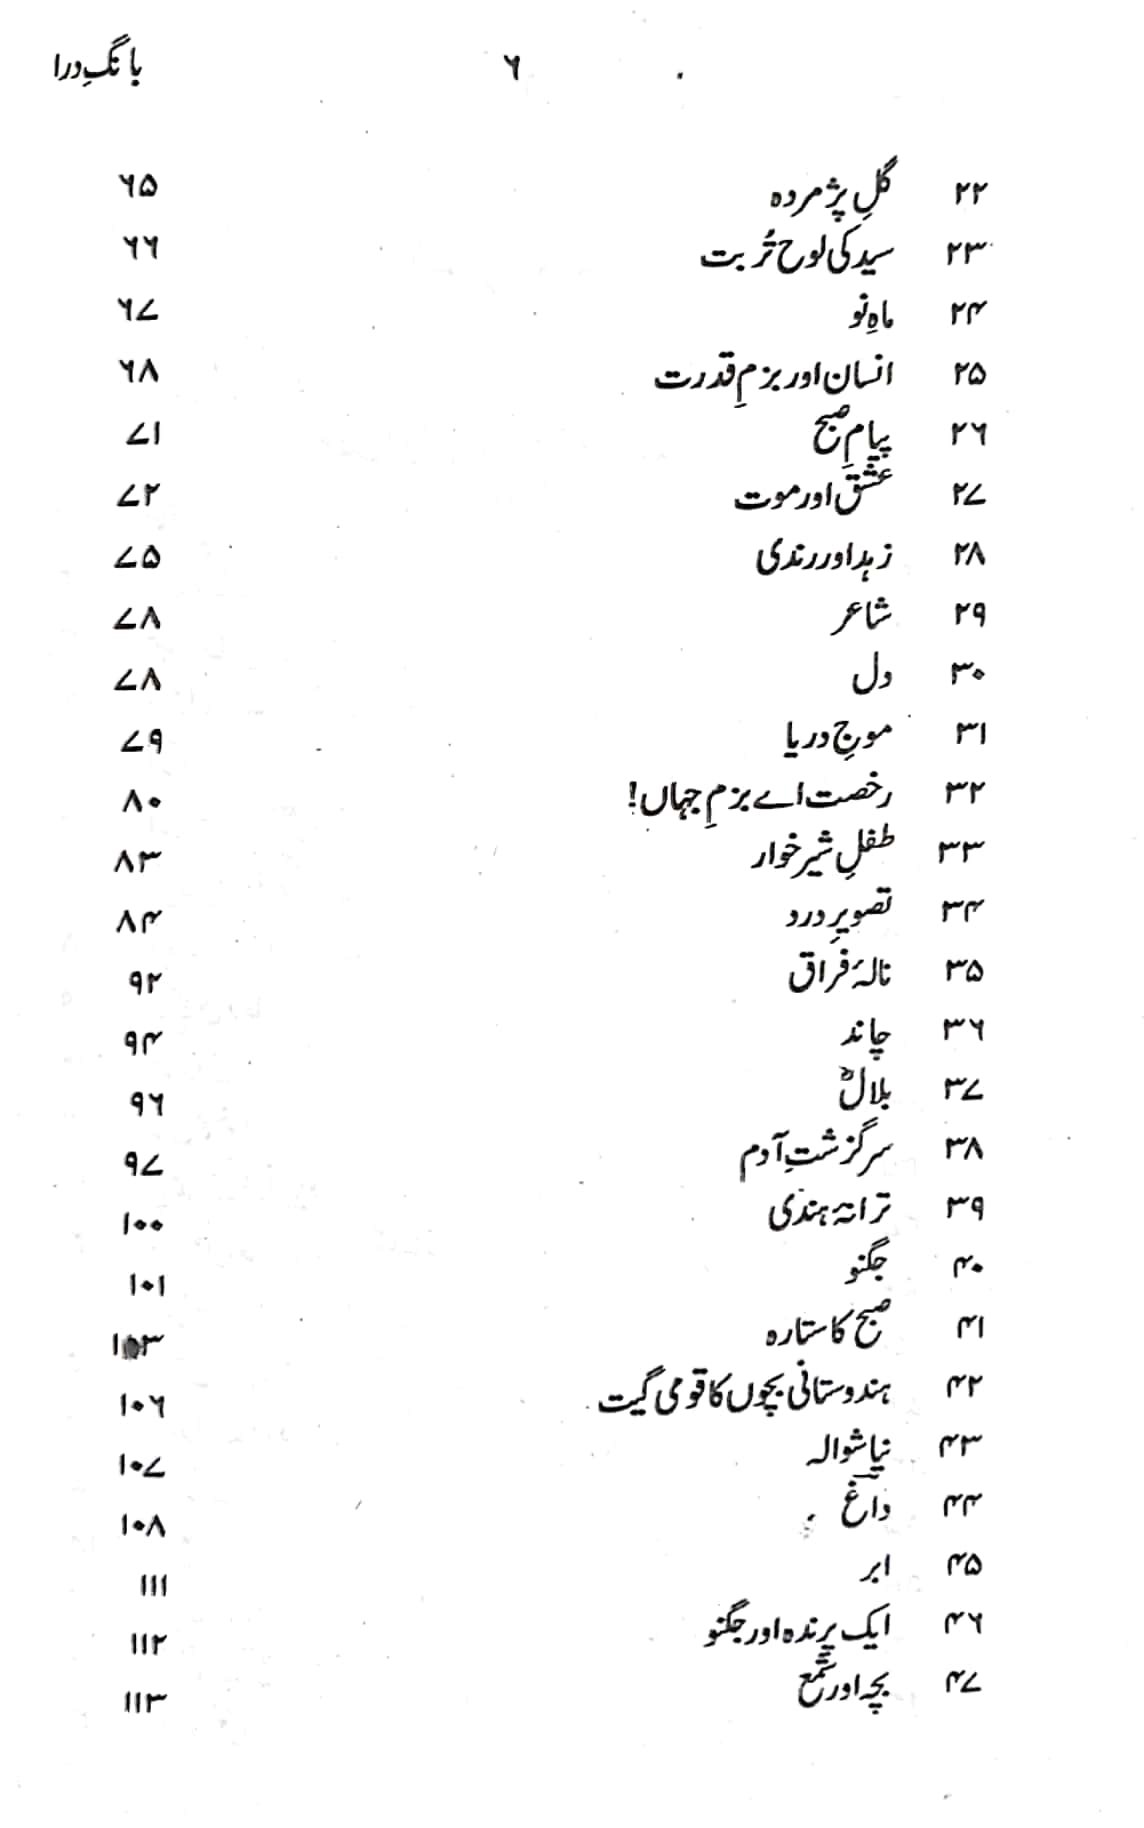 بانگِ درا ۶
۲۲ گلِ پژمردہ ۶۵
۲۳ سید کی لوح تُربت ۶۶
۲۴ ماہِ نو ۶۷
۲۵ انسان اور بزمِ قدرت ۶۸
۲۶ پیامِ صبح ۷۱
۲۷ عشق اور موت ۷۲
۲۸ زہد اور رندی ۷۵
۲۹ شاعر ۷۸
۳۰ دل ۷۸
۳۱ موجِ دریا ۷۹
۳۲ رخصت اے بزمِ جہاں! ۸۰
۳۳ طفلِ شیر خوار ۸۳
۳۴ تصویرِ درد ۸۴
۳۵ نالۂ فراق ۹۲
۳۶ چاند ۹۴
۳۷ بلالؓ ۹۶
۳۸ سرگزشتِ آدم ۹۷
۳۹ ترانۂ ہندی ۱۰۰
۴۰ جگنو ۱۰۱
۴۱ صبح کا ستارہ ۱۰۳
۴۲ ہندوستانی بچوں کا قومی گیت ۱۰۶
۴۳ نیا شوالہ ۱۰۷
۴۴ داغؔ ۱۰۸
۴۵ ابر ۱۱۱
۴۶ ایک پرندہ اور جگنو ۱۱۲
۴۷ بچہ اور شمع ۱۱۳